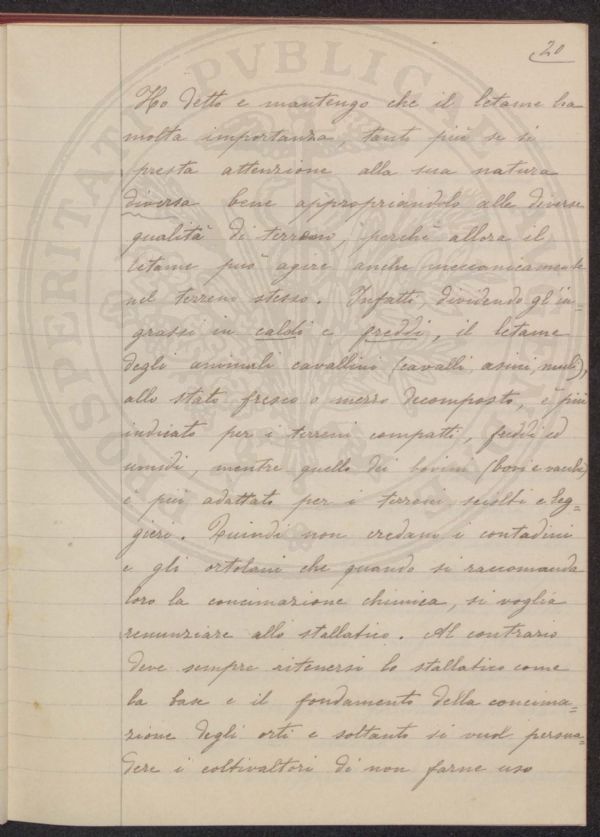 20
Ho detto e mantengo che il letame ha
molta importanza, tanto più se si
presta attenzione alla sua natura
diversa bene appropriandolo alle diverse
qualità di terreno, perchè allora il
letame può agire anche meccanicamente
nel terreno stesso. Infatti, dividendo gl'in=
grassi in caldi e freddi, il letame
degli animali cavallini (cavalli, asini, muli),
allo stato fresco o mezzo decomposto, è più
indicato per i terreni compatti, freddi ed
umidi, mentre quello dei bovini (bovi e vacche)
è più adattato per i terreni sciolti e leg=
gieri. Quindi non credano i contadini
e gli ortolani che quando si raccomanda
loro la concimazione chimica, si voglia
renunziare allo stallatico. Al contrario
deve sempre ritenersi lo stallatico come
la base e il fondamento della concima=
zione degli orti e soltanto si vuol persua=
dere i coltivaltori di non farne uso
PROSPERITATI PVBLICAE